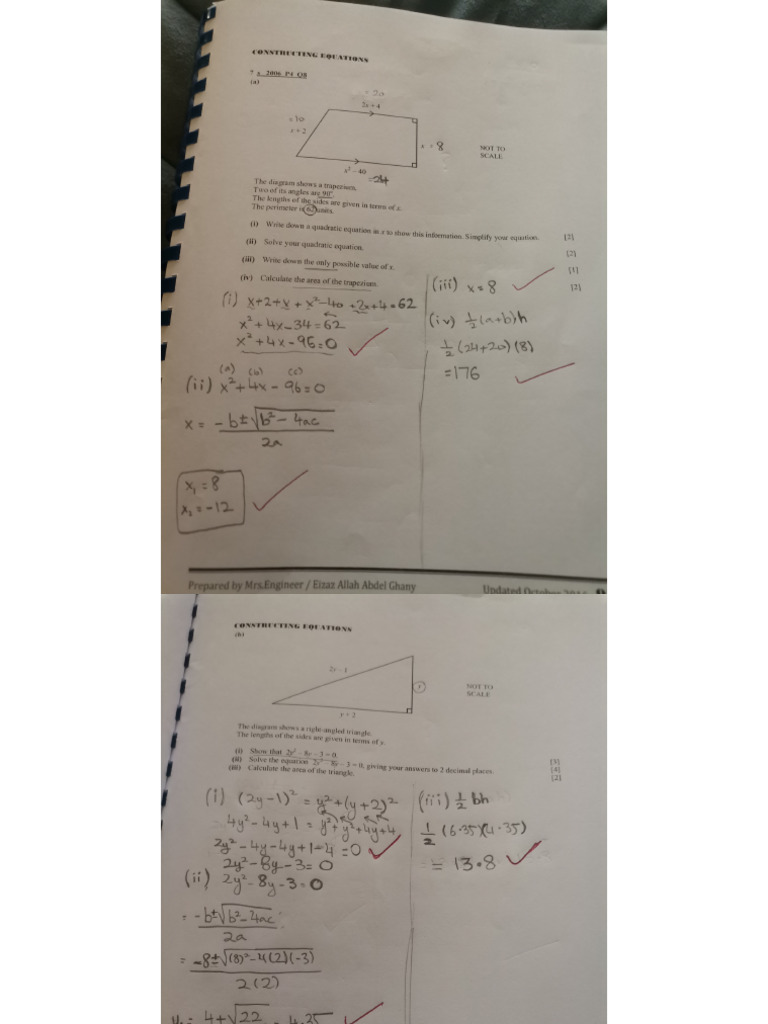 CONSTRUCTING EQUATIONS
2006 P4 Q8
(a)
= 20
2x + 4
= 10
x + 2
x = 8
NOT TO
SCALE
x² – 40
= 24
The diagram shows a trapezium.
Two of its angles are 90°.
The lengths of the sides are given in terms of x.
The perimeter is 62 units.
(i) Write down a quadratic equation in x to show this information. Simplify your equation. [2]
(ii) Solve your quadratic equation. [2]
(iii) Write down the only possible value of x. [1]
(iv) Calculate the area of the trapezium. [2]
(i) x+2+x+x²–40+2x+4=62
x²+4x–34=62
x²+4x–96=0
(a) (b) (c)
(ii) x²+4x–96=0
x = –b±√b²–4ac
2a
x₁ = 8
x₂ = –12
(iii) x=8
(iv) ½(a+b)h
½(24+20)(8)
=176
Prepared by Mrs.Engineer / Eizaz Allah Abdel Ghany
Updated October
CONSTRUCTING EQUATIONS
(b)
2y – 1
y
NOT TO
SCALE
y + 2
The diagram shows a right-angled triangle.
The lengths of the sides are given in terms of y.
(i) Show that 2y² – 8y – 3 = 0. [3]
(ii) Solve the equation 2y² – 8y – 3 = 0, giving your answers to 2 decimal places. [4]
(iii) Calculate the area of the triangle. [2]
(i) (2y–1)² = y²+(y+2)²
4y²–4y+1 = y²+y²+4y+4
2y²–4y–4y+1–4=0
2y²–8y–3=0
(ii) 2y²–8y–3=0
= –b±√b²–4ac
2a
= –8±√(8)²–4(2)(–3)
2(2)
4+√22
= 4.35
(iii) ½bh
½(6.35)(4.35)
= 13.8